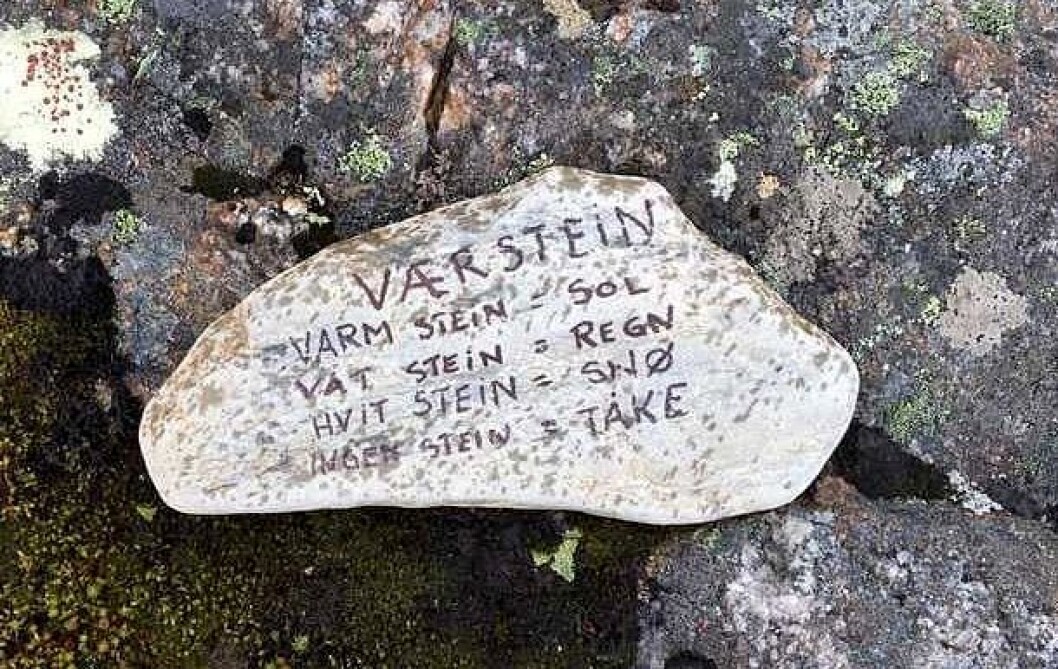 VÆRSTEiN
VARM STEiN = SOL
VÅT STEiN = REGN
HViT STEiN = SNØ
INGEN STEiN = TÅKE